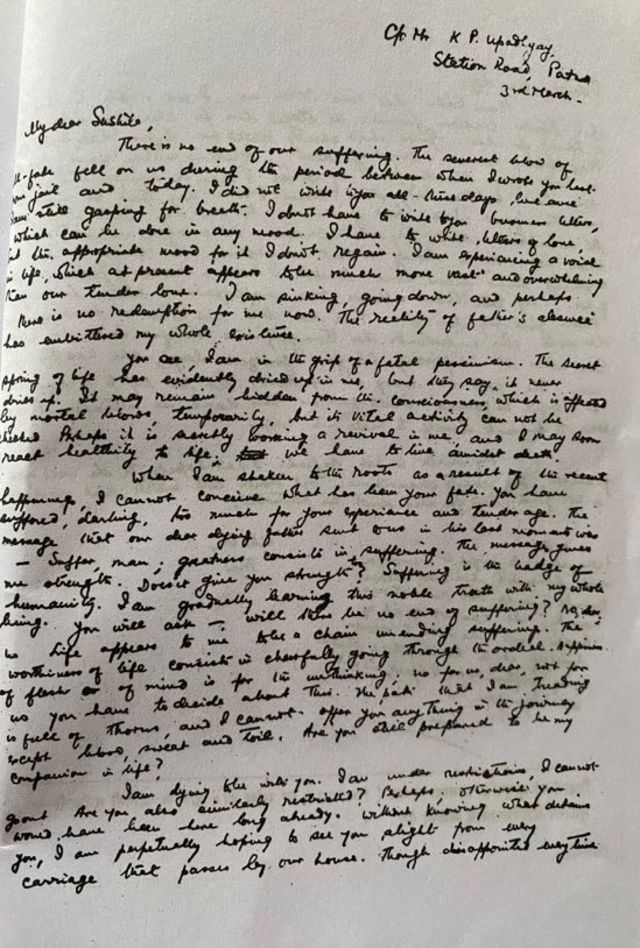 C/o Mr K P. Upadhyay.
Station Road, Patna
3rd March.
My dear Sushila,
There is no end of our suffering. The severest blow of
fate fell on us during the period between when I wrote you last
jail and today. I did not write to you all these days, because
I am still gasping for breath. I don't have to write to you business letters,
which can be done in any mood. I have to write letters of love,
the appropriate mood for it I don't regain. I am experiencing a void
in life, which at present appears to be much more vast and overwhelming
than our tender love. I am sinking, going down, and perhaps
there is no redemption for me now. The reality of father's absence
has embittered my whole existence.
You see, I am in the grip of a fatal pessimism. The secret
spring of life has evidently dried up in me, but they say, it never
dries up. It may remain hidden from the consciousness, which is affected
by mortal blows, temporarily, but its vital activity can not be
checked Perhaps it is secretly working a revival in me, and I may soon
react healthily to life; we have to live amidst death.
When I am shaken to the roots as a result of the recent
happenings, I cannot conceive what has been your fate. You have
suffered, darling, too much for your experience and tender age. The
message that our dear dying father sent to us in his last moments was
— Suffer, man; greatness consists in suffering. The message gives
me strength. Does it give you strength? Suffering is the badge of
humanity. I am gradually learning this noble truth with my whole
being. You will ask — will there be no end of suffering? No, dear,
Life appears to me to be a chain unending suffering. The
worthiness of life consists in cheerfully going through the ordeal.
of flesh or of mind is for the unthinking; no for us, dear, not for
us you have to decide about this. The path that I am treading
is full of thorns, and I cannot offer you anything in the journey
except blood, sweat and toil. Are you still prepared to be my
companion in life?
I am dying to be with you. I am under restrictions, I cannot
go out Are you also similarly restricted? Perhaps. Otherwise you
would have been here long already. Without knowing what detains
you, I am perpetually hoping to see you alight from every
carriage that passes by our house. Though disappointed every time